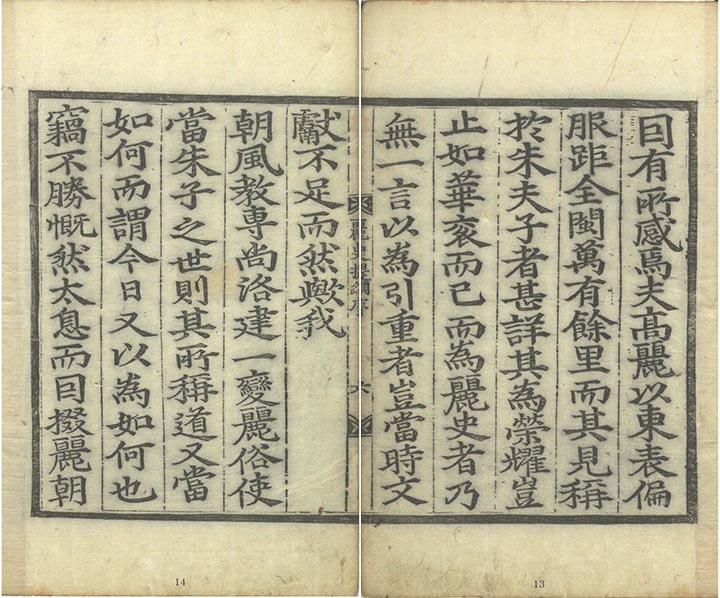 囙有所感焉夫高麗以東表偏
服距全閩萬有餘里而其見稱
扵朱夫子者甚詳其為榮耀豈
止如華衮而已而為麗史者乃
無一言以為引重者豈當時文
麗史提綱序 六
獻不足而然歟我
朝風教專尚洛建一變麗俗使
當朱子之世則其所稱道又當
如何而謂今日又以為如何也
竊不勝慨然太息而囙掇麗朝
13
14